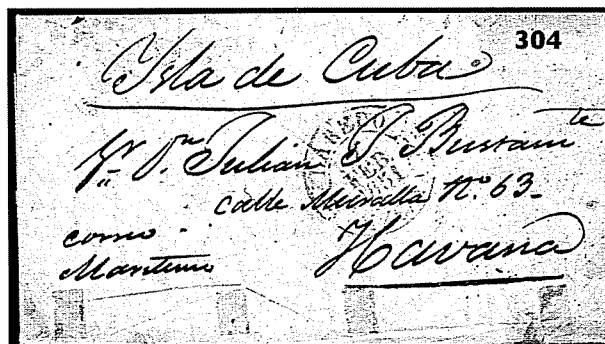 304
Isla de Cuba
Sr. Dn. Julián S. Bustamte
LAREDO
FEB.
calle Muralla No. 63.
correo
Maritimo
Havana